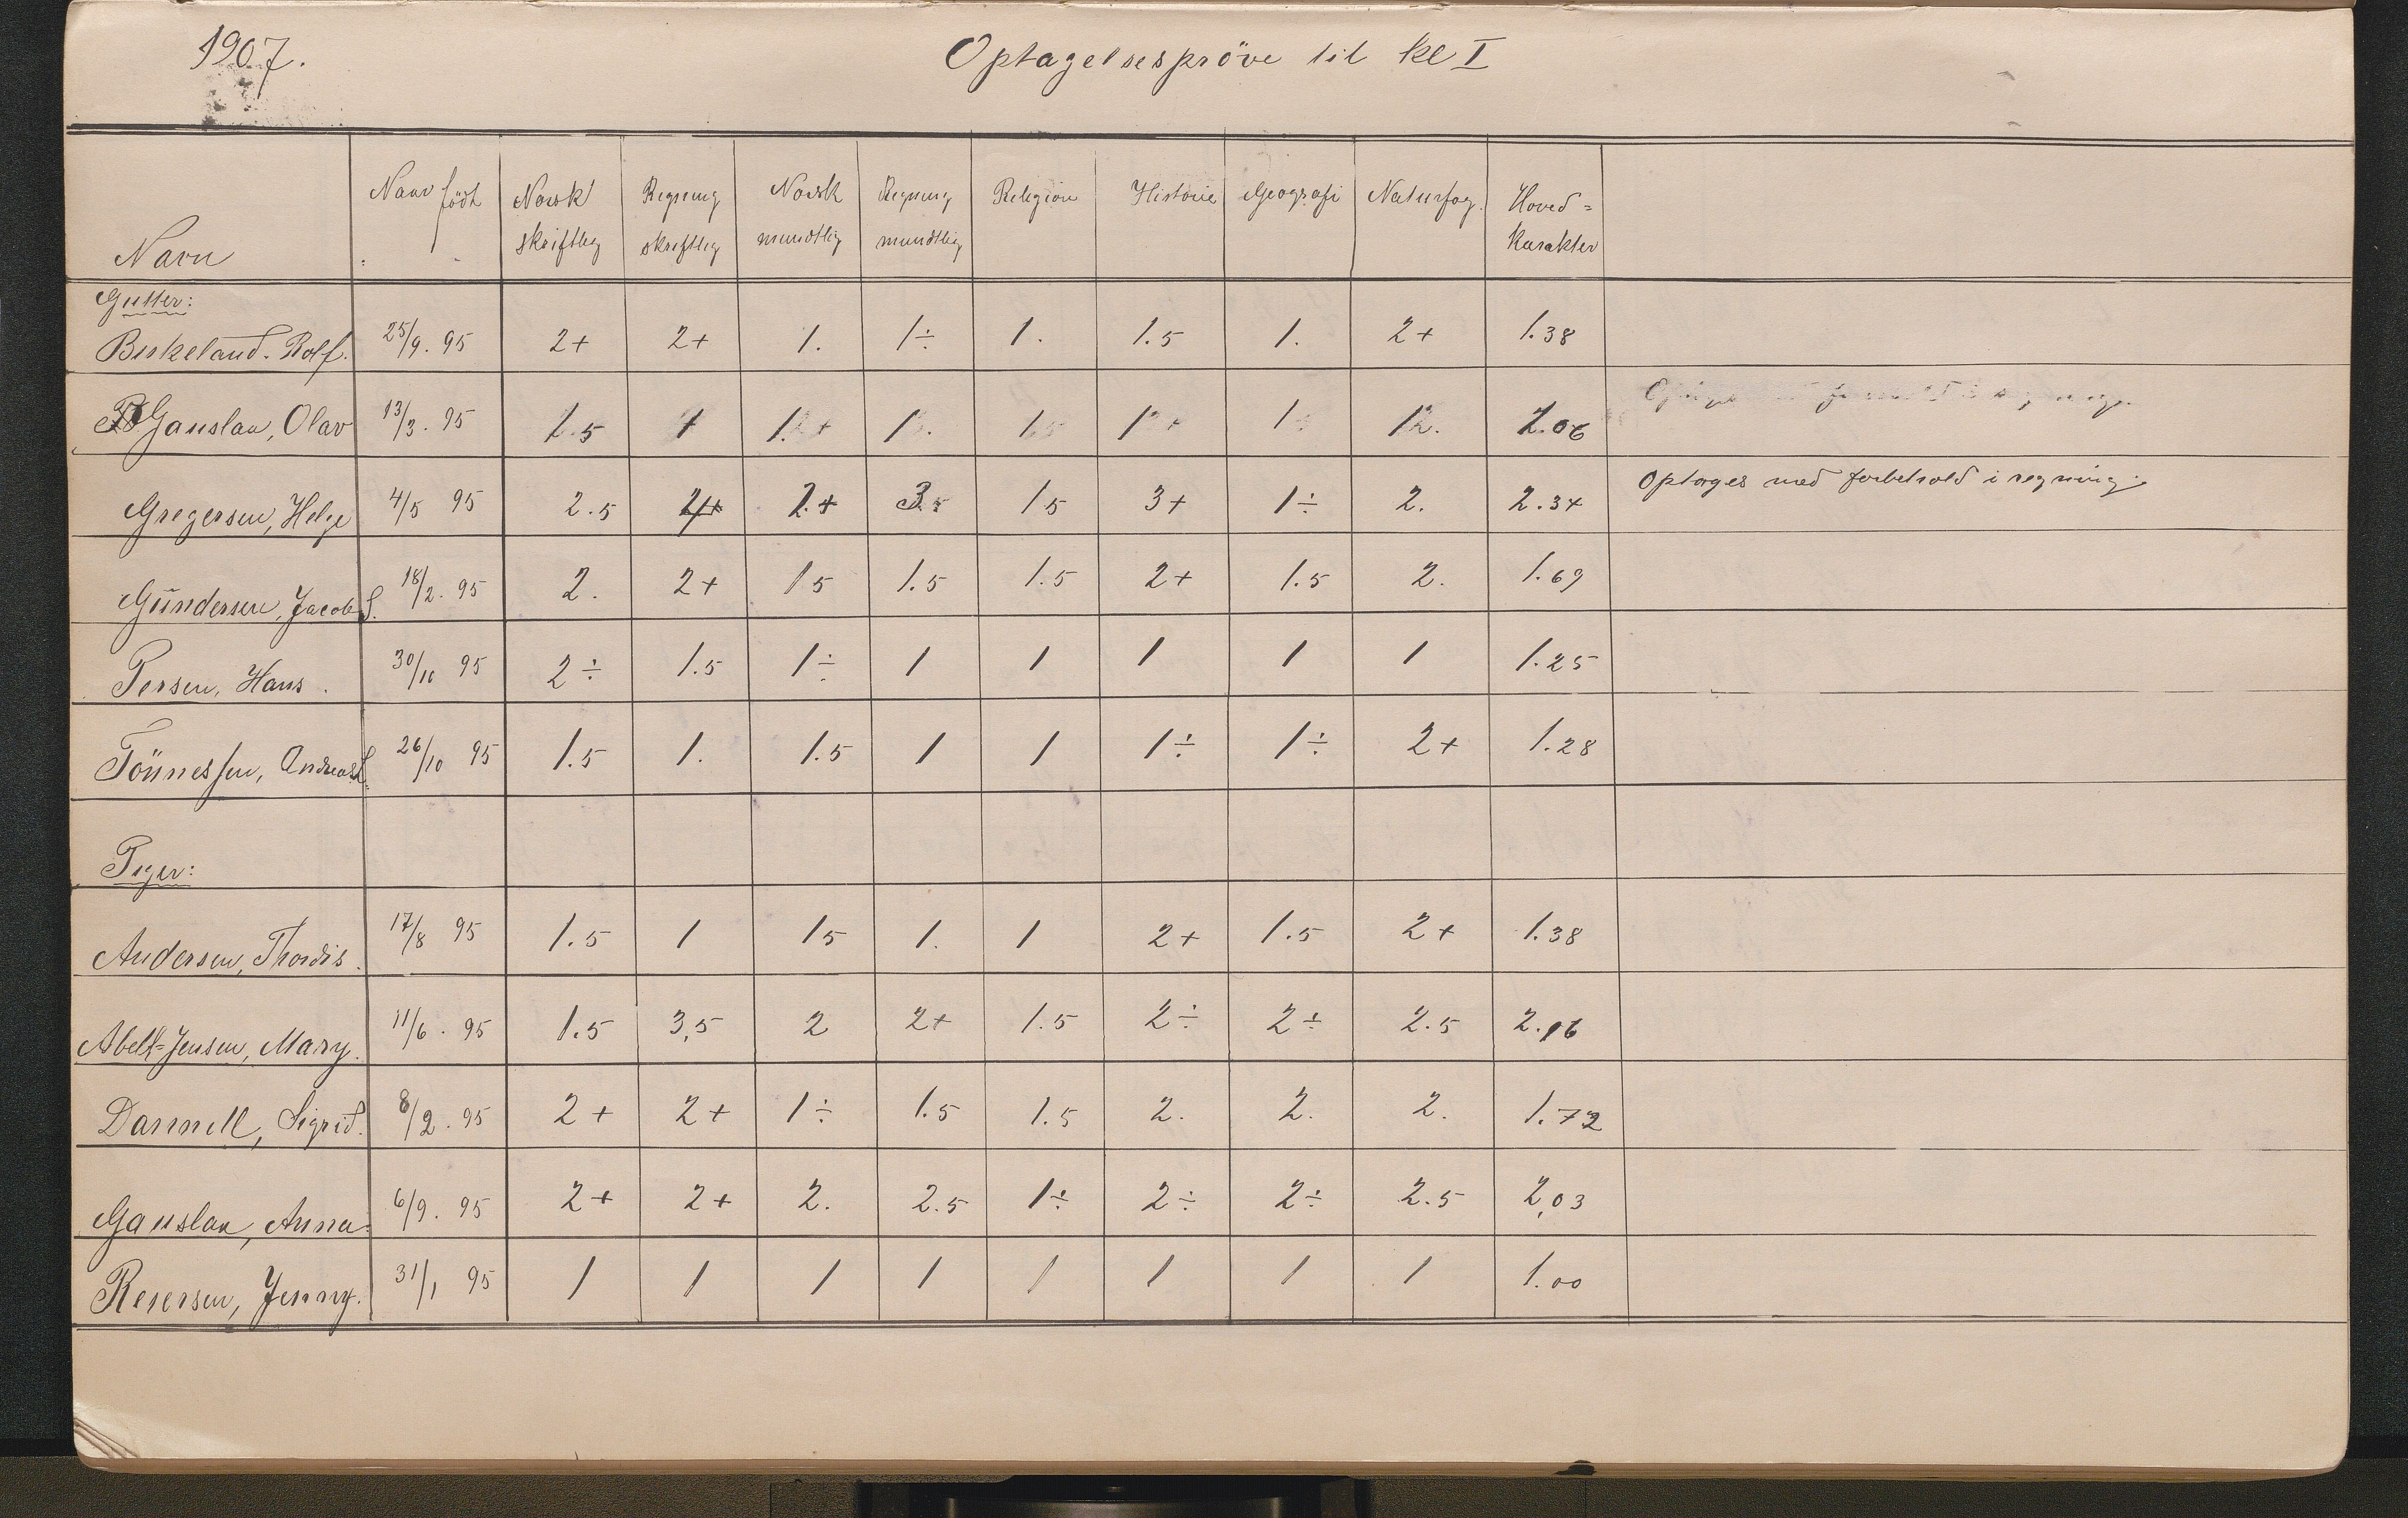 1907.
Optagelsespröve til kl I
Navn | Naar født | Norsk skriftlig | Regning skriftlig | Norsk mundtlig | Regning mundtlig | Religion | Historie | Geografi | Naturfag. | Hoved= karakter
Gutter:
Birkeland. Rolf. | 25/9. 95 | 2+ | 2+ | 1. | 1÷ | 1. | 1.5 | 1. | 2+ | 1.38
Gauslaa, Olav | 13/3. 95 | 1.5 | 1 | 1. | 1. | 1 | 1 | 1 | 1 | 1.06
Gregersen, Helge | 4/5 95 | 2.5 | | 2.+ | 3.5 | 1 5 | 3+ | 1÷ | 2. | 2.34 | Optages med forbehold i regning.
Gündersen, Jacob S. | 18/2. 95 | 2. | 2+ | 1 5 | 1.5 | 1.5 | 2+ | 1.5 | 2. | 1.69
Persen, Hans. | 30/10 95 | 2÷ | 1.5 | 1÷ | 1 | 1 | 1 | 1 | 1 | 1.25
Tönnessen, Andreas L. | 26/10 95 | 1.5 | 1. | 1.5 | 1 | 1 | 1÷ | 1÷ | 2+ | 1.28
Piger:
Andersen, Thordis. | 17/8 95 | 1.5 | 1 | 1 5 | 1. | 1 | 2+ | 1.5 | 2+ | 1.38
Abell=Jensen, Mary. | 11/6. 95 | 1.5 | 3,5 | 2 | 2+ | 1.5 | 2÷ | 2÷ | 2.5 | 2.16
Dannell, Sigrid. | 8/2. 95 | 2+ | 2+ | 1÷ | 1.5 | 1.5 | 2. | 2. | 2. | 1.72
Gauslaa, Anna. | 6/9. 95 | 2+ | 2+ | 2. | 2.5 | 1÷ | 2÷ | 2÷ | 2.5 | 2,03
Reiersen, Jenny. | 31/1 95 | 1 | 1 | 1 | 1 | 1 | 1 | 1 | 1 | 1.00